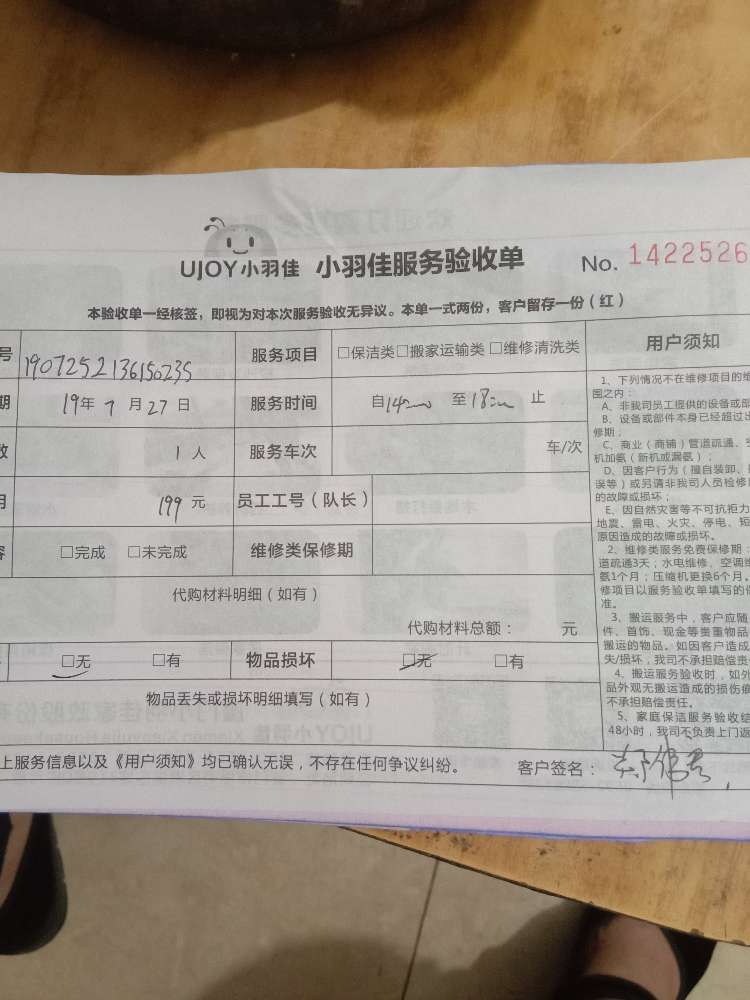 UJOY小羽佳 小羽佳服务验收单 No. 1422526
本验收单一经核签，即视为对本次服务验收无异议。本单一式两份，客户留存一份（红）
号 190725213615023S 服务项目 □保洁类□搬家运输类 □维修清洗类
期 19年 7 月 27 日 服务时间 自14:00 至18:00 止
数 1 人 服务车次 车/次
199 元 员工工号（队长）
□完成 □未完成 维修类保修期
代购材料明细（如有）
代购材料总额： 元
□无 □有 物品损坏 □无 □有
物品丢失或损坏明细填写（如有）
上服务信息以及《用户须知》均已确认无误，不存在任何争议纠纷。 客户签名：
用户须知
1、下列情况不在维修项目的维
围之内：
A、非我司员工提供的设备或部
B、设备或部件本身已经超过出
修期；
C、商业（商铺）管道疏通、空
机加氨（新机或漏氨）；
D、因客户行为（擅自装卸、
误等）或另请非我司人员检修
的故障或损坏；
E、因自然灾害等不可抗拒力
地震、雷电、火灾、停电、短
原因造成的故障或损坏。
2、维修类服务免费保修期：
道疏通3天；水电维修、空调
氨1个月；压缩机更换6个月。
修项目以服务验收单填写的保
准。
3、搬运服务中，客户应随
件、首饰、现金等贵重物品
搬运的物品。如因客户造成
失/损坏，我司不承担赔偿责
4、搬运服务验收时，如外
品外观无搬运造成的损伤痕
不承担赔偿责任。
5、家庭保洁服务验收结
48小时，我司不负责上门返